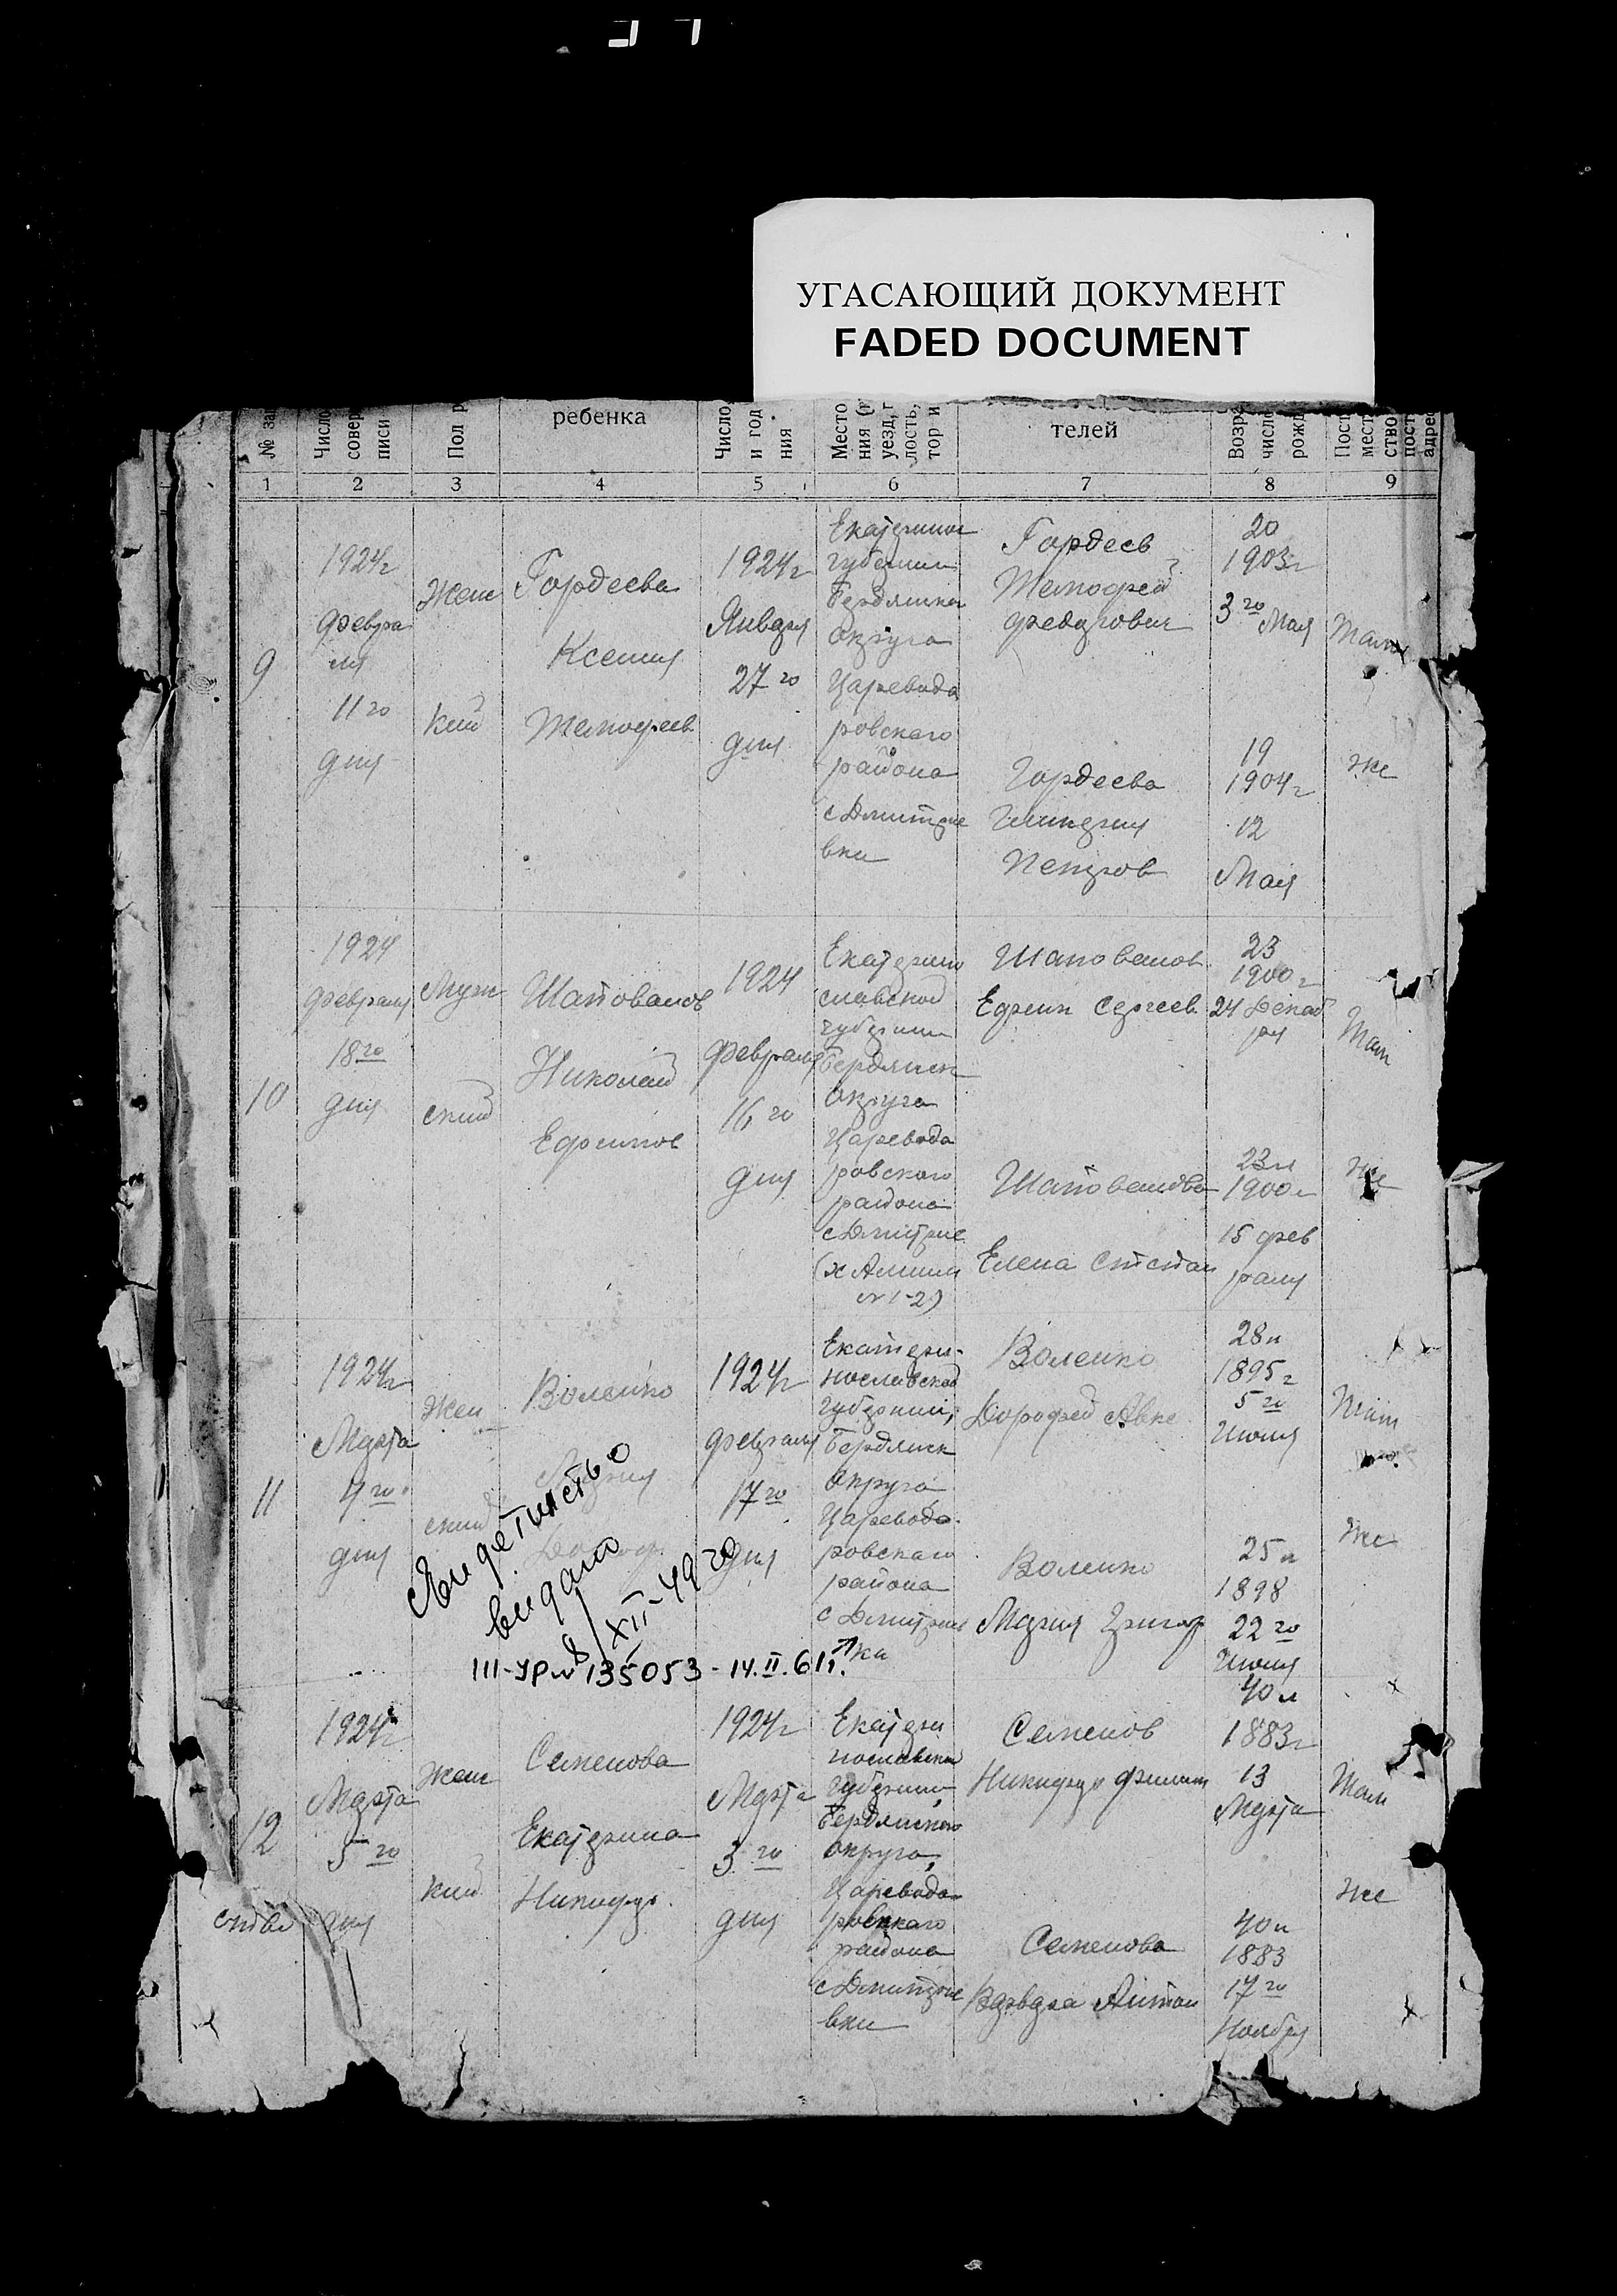 УГАСАЮЩИЙ ДОКУМЕНТ
FADED DOCUMENT
№ за
Число
совер
писи
Пол р
ребенка
Число
и год
ния
Место
ния (
уезд, г
лость,
тор и
телей
Возра
число
рожд
Пост
мест
ство
пост
адрес
1 2 3 4 5 6 7 8 9
9
1924г
Февра
ля
11го
дня
Женс
кий
Гордеева
Ксения
Тимофеев
1924г
Января
27го
дня
Екатеринос
губернии
Бердянска
округа
Цареводо
ровскаго
района
с Дмитрие
вки
Гордеев
Тимофей
Федорович
Гордеева
Петров
20
1903г
3го Мая
19
1904г
12
Мая
Там
же
10
1924
Февраля
18го
дня
Муж
ский
Шаповалов
Николай
Ефимов
1924
Февраля
16го
дня
Екатерино
славской
губернии
Бердянск
округа
Цареводо
ровскаго
района
с Дмитрие
N 1-2)
Шаповалов
Ефим Сергеев
Шаповалова
Елена Степан
23
1900г
24 Декаб
ря
23л
1900г
15 фев
раля
Там
же
11
1924г
Марта
4го
дня
Жен
ский
Волейко
Мария
1924г
Февраля
17го
дня
Екатери-
нославской
губернии,
Бердянск
округа
Цареводо-
ровскаго
района
с Дмитрие
вка
Волейко
Дорофей
Волейко
Мария Григор
28л
1895г
5го
Июля
25л
1898
22го
Июля
Там
же
видано
XII-49 го
III-УР № 135053 - 14.II.61г.
12
1924г
Марта
5го
дня
Женс
кий
Семенова
Екатерина
Никифор.
1924г
Марта
3го
дня
Екатери
нославска
губернии,
Бердянскаго
округа,
Цареводо
ровскаго
района
с Дмитрие
вки
Семенов
Никифор Филип
Семенова
Варвара Антон
40л
1883г
13
Марта
40л
1883
17го
Ноября
Там
же